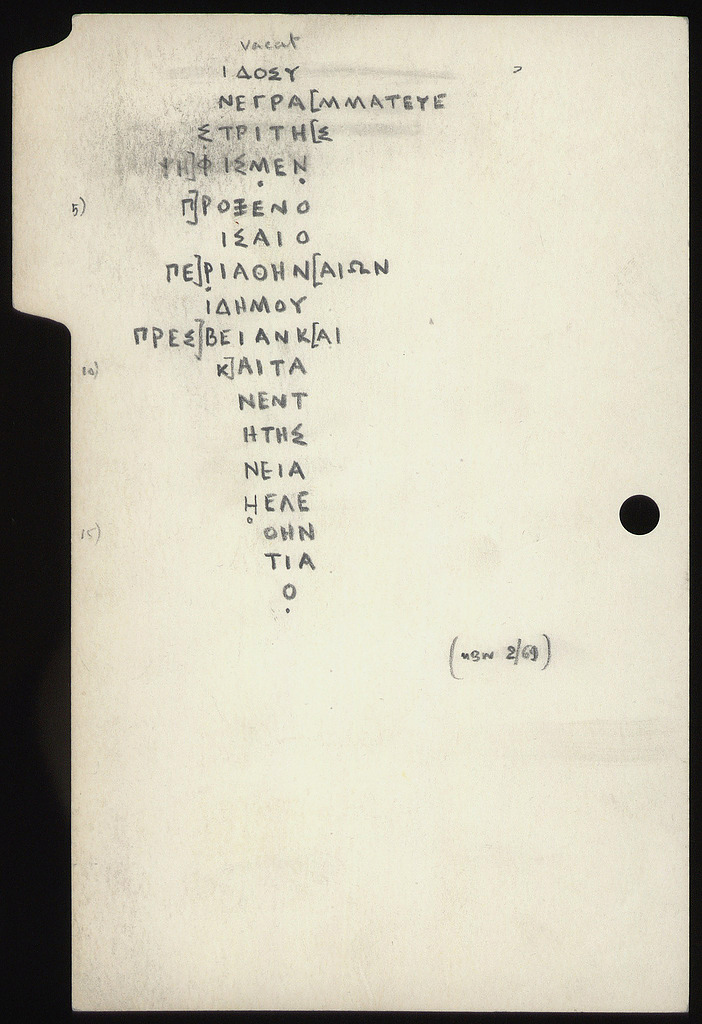 vacat
ΙΔΟΣΥ
ΝΕΓΡΑ[ΜΜΑΤΕΥΕ
ΣΤΡΙΤΗ[Σ
ΨΗ]ΦΙΣΜ̣ΕΝ̣
5) Π]ΡΟΞΕΝΟ
ΙΣΑΙΟ
ΠΕ]Ρ̣ΙΑΘΗΝ[ΑΙΩΝ
ΙΔΗΜΟΥ
ΠΡΕΣ]ΒΕΙΑΝΚ[ΑΙ
10) Κ]ΑΙΤΑ
ΝΕΝΤ
ΗΤΗΣ
ΝΕΙΑ
Η̣ΕΛΕ
15) ΘΗΝ
ΤΙΑ
Ο̣